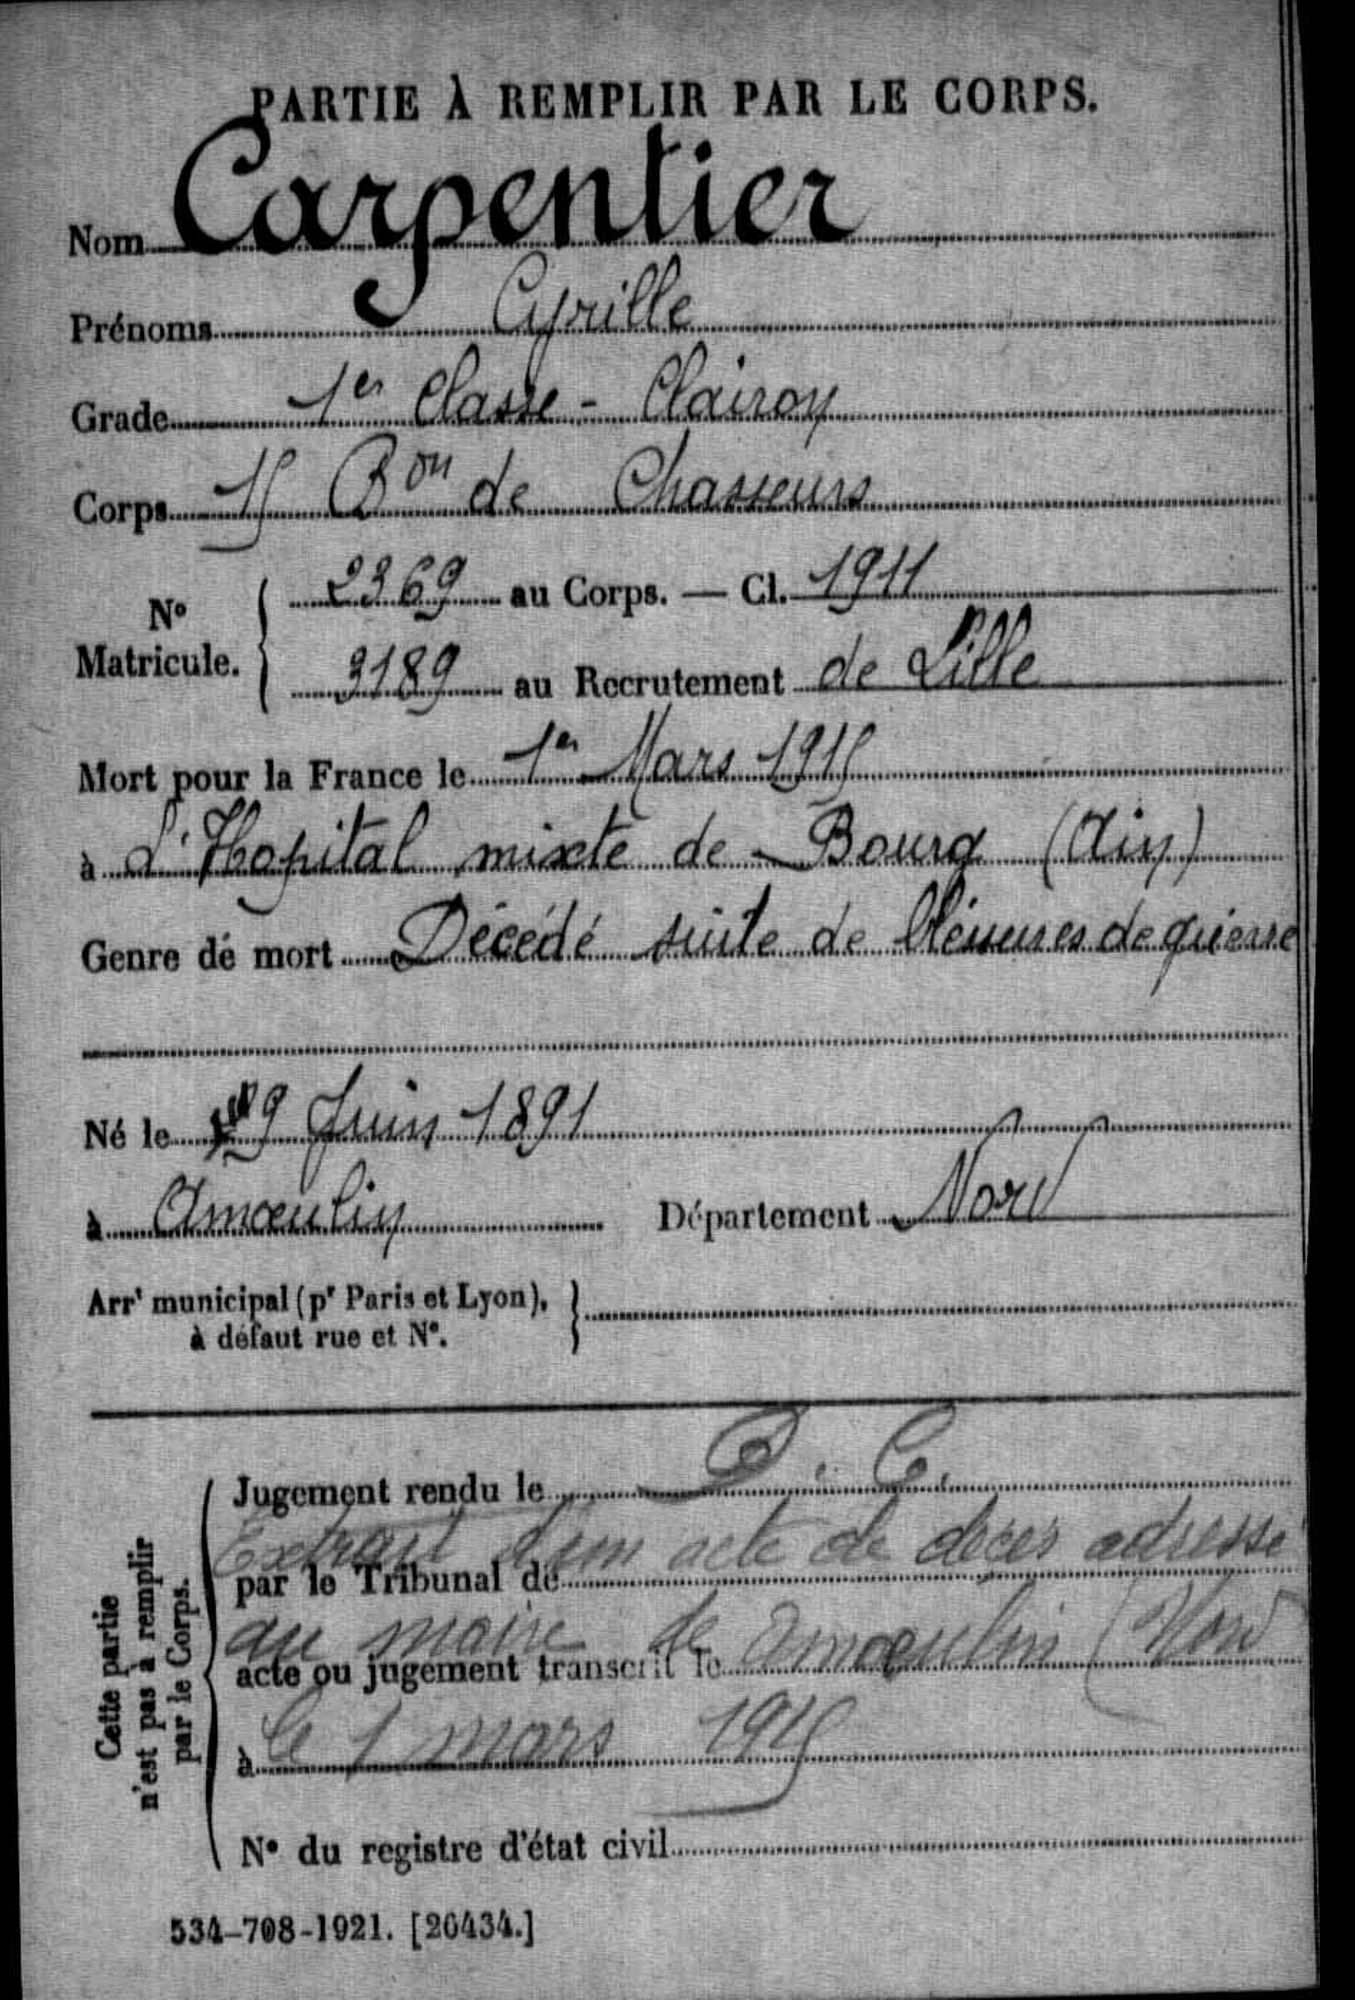 PARTIE À REMPLIR PAR LE CORPS.
Nom Carpentier
Prénoms Cyrille
Grade 1er Classe - Clairon
Corps 15 Bon de Chasseurs
No Matricule. { 2369 au Corps. — Cl. 1911
3189 au Recrutement de Lille
Mort pour la France le 1er Mars 1915
à L'Hopital mixte de Bourg (Ain)
Genre de mort Décédé suite de blessures de guerre
Né le 9 Juin 1891
à Annœulin Département Nord
Arrt municipal (pr Paris et Lyon), }
à défaut rue et No.
Cette partie
n'est pas à remplir
par le Corps.
Jugement rendu le
Extrait d'un acte de décès adressé
par le Tribunal de
au maire de Annœulin (Nord
acte ou jugement transcrit le
le 1 mars 1915
à
No du registre d'état civil
534-708-1921. [26434.]